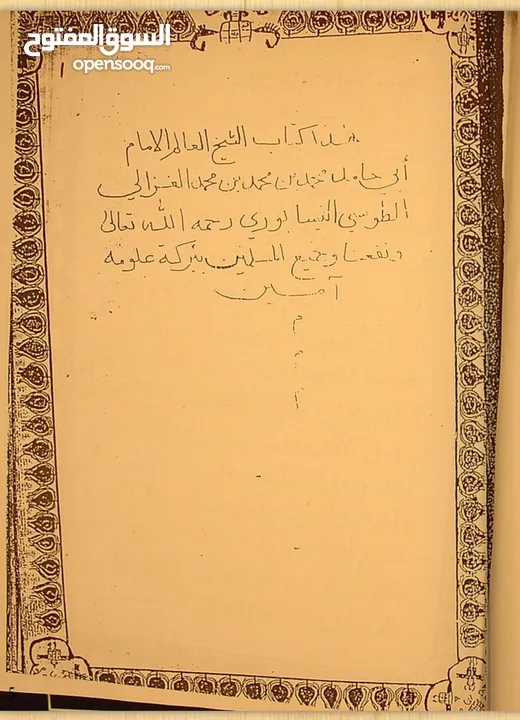 السوق المفتوح
opensooq.com
١
هذا كتاب الشيخ العالم الامام
أبي حامد محمد بن محمد بن محمد الغزالي
الطوسي النيسابوري رحمه الله تعالى
ونفعنا وجميع المسلمين ببركة علومه
آمين
م